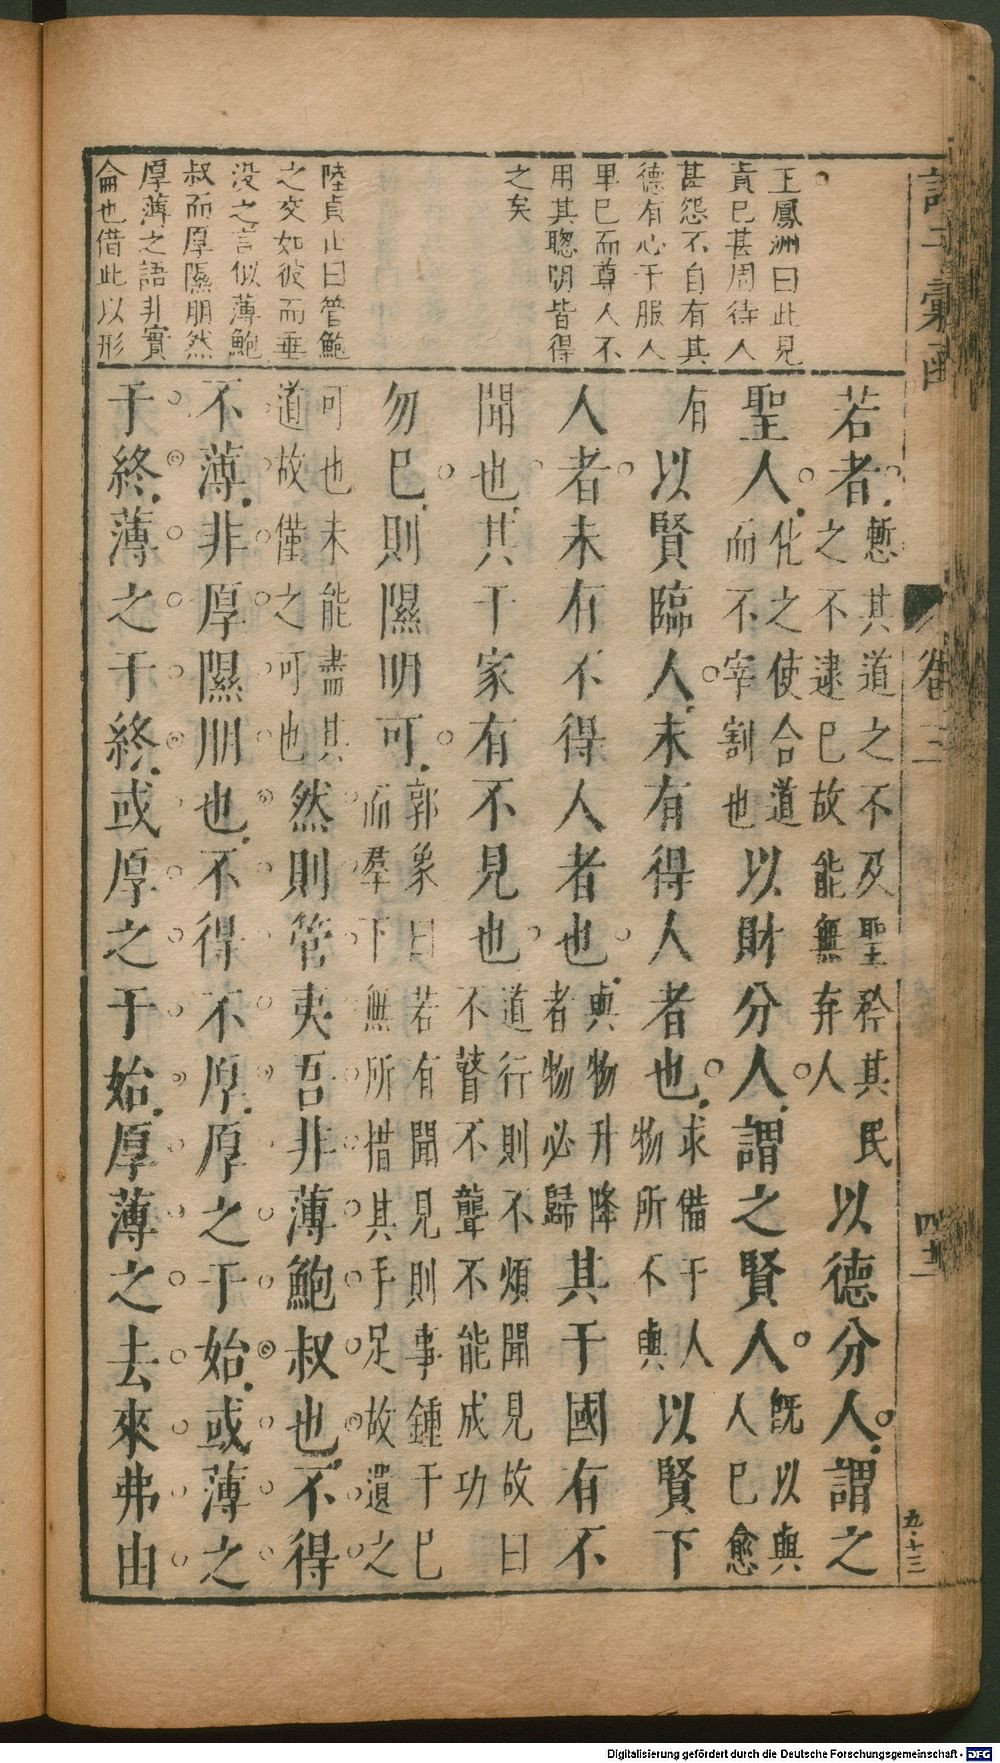 王鳳洲曰此見
責已甚周待人
甚怨不自有其
德有心于服人
卑已而尊人不
用其聰明皆得
之矣
陸貞山曰管鮑
之交如彼而垂
没之言似薄鮑
叔而厚隰朋然
厚薄之語非實
侖也借此以形
若者慙其道之不及聖矜其民
之不逮已故能無弃人以德分人謂之
聖人化之使合道
而不宰割也以財分人謂之賢人既以與
人已愈
有以賢臨人未有得人者也求備于人
物所不與以賢下
人者未有不得人者也與物升降
者物必歸其于國有不
聞也其于家有不見也道行則不煩聞見故曰
不瞽不聾不能成功
勿已則隰朋可郭象曰若有聞見則事鍾于已
而羣下無所措其手足故遺之
可也未能盡其
道故僅之可也然則管夷吾非薄鮑叔也不得
不薄非厚隰朋也不得不厚厚之于始或薄之
于終薄之于終或厚之于始厚薄之去來弗由
卷三
五十三
Digitalisierung gefördert durch die Deutsche Forschungsgemeinschaft - DFG